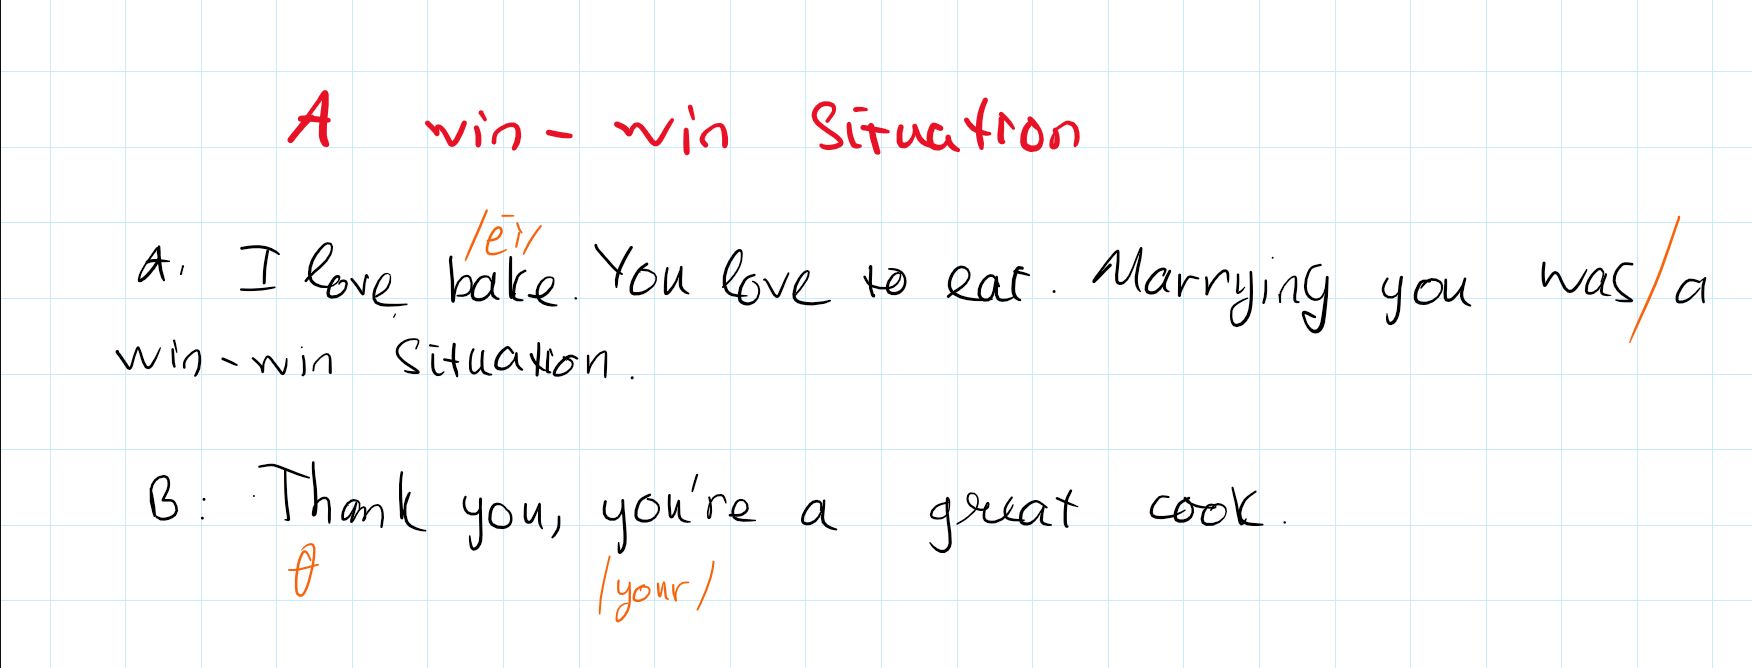 A win-win situation
/eɪ/
A. I love bake. You love to eat. Marrying you was / a
win-win situation.
B: Thank you, you're a great cook.
θ /your/